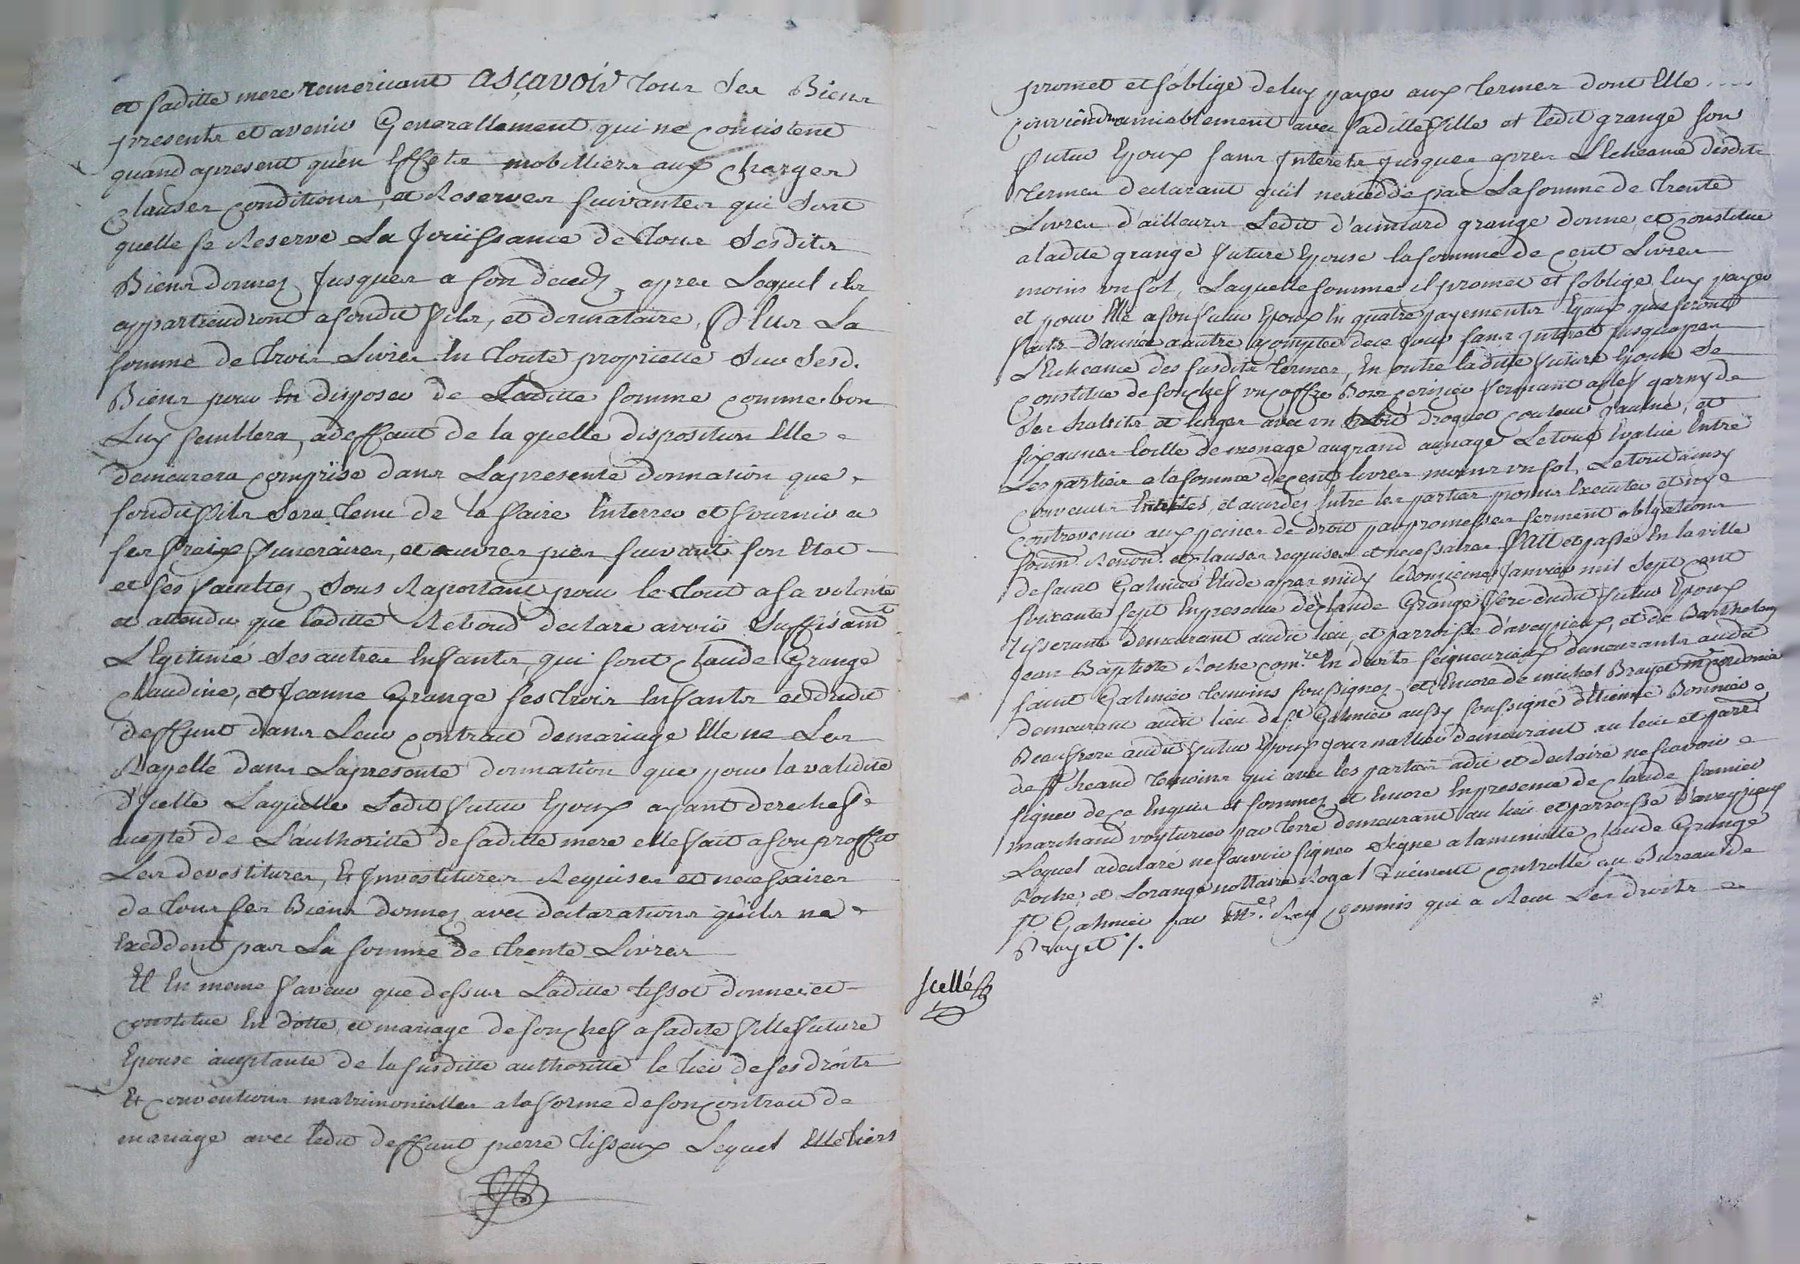 et saditte mere remerciant ascavoir tous ses Biens
presents et avenir Generallement qui ne consistent
quand apresent qu'en Effets mobilliers aux charges
clauses conditions, et Reserves suivantes qui sont
quelle se Reserve La Joüissance de tous sesdits
Biens donnez Jusques a son deceds, apres Lequel ils
appartiendront a sondit fils, et donnataire, Plus La
somme de trois Livres En toute propriette sur sesd.
Biens pour En disposer de Laditte somme comme bon
Luy semblera, adeffaut de la quelle disposition Elle
demeurera comprise dans Lapresente donnation que
sondit fils sera tenu de la faire Enterrer et fournir a
ses fraix funeraires, et œuvres pies suivant son Etat
et ses facultez, sous Raportant pour le tout a sa volonté
et attendu que laditte Reboud declare avoir suffisamt
Légitimé ses autres Enfants, qui sont Claude Grange
Claudine, et Jeanne Grange ses trois Enfants et dudit
deffunt dans Leur contrait de mariage Elle ne Les
Rapelle dans Lapresente donnation que pour la validité
d'Icelle Laquelle Ledit futur Epoux ayant derechef
accepté de L'authoritté de saditte mere elle fait a son proffit
Les devestitures, Et Investitures Requises et necessaires
de tous ses Biens donnez, avec declarations qu'ils ne
Exceddent pas La somme de trente Livres
Et En meme faveur que dessus Laditte tissot donne, et
constitue En dotte, et mariage de son chef a sadite fille future
Epouse acceptante de la susditte authoritté le tiers de ses droits
Et conventions matrimonialles a la forme de son contrait de
mariage avec ledit deffunt pierre tisseux Lequel Elle tiers
promet et s'oblige de luy payer aux termes dont Elle
conviendra amiablement avec saditte fille et ledit grange son
futur Epoux sans Interets Jusques apres L'Echeance desdits
termes declarant qu'il nexcedde pas La somme de trente
Livres d'ailleurs Ledit d'aimard grange donne, et constitue
a ladite grange future Epouse la somme de cent Livres
moins un sol, Laquelle somme il promet et s'oblige luy payer
et pour Elle a son futur Epoux En quatre payements Egaux qui se feront
d'année a autre a compter de ce Jour sans Interet Jusques apres
L'Echeance des susdits termes, En outre laditte future Epouse se
constitue de son chef un coffre Bois cerisier fermant a clef garny de
ses habits et linges avec un habit droguet couleur Jaune, et
six aunes toille de menage au grand aunage Le tout Evalué Entre
Les parties a la somme de cent livres moins un sol, Le tout ainsy
convenu Entre les parties promis Executer et ny
contrevenir aux peines de droit par promesses serment obligations
soum. Renon. et clauses requises et necessaires fait et passé En la ville
de saint Galmier Etude apres midy le Janvier mil sept cent
soixante sept En presence de Claude Grange frere dudit futur Epoux
tisserant demeurant audit lieu, et parroisse d'aveyzieux, et de Barthelemy
Jean Baptiste Roche comre En droits seigneuriaux demeurants audit
saint Galmier temoins soussignez et Encore de michel Brayet mre cordonnier
demeurant audit lieu de st Galmier aussy soussigné d'Etienne Bonnier
Beaufrere audit futur Epoux journallier demeurant au lieu et parre
de temoins qui avec les parties a dit et declaré ne scavoir
signer de ce Enquis et sommez et Encore En presence de Claude
marchand voyturier par terre demeurant au lieu et parroisse d'aveyzieux
Lequel a declaré ne scavoir signer signé a la minutte Claude Grange
Roche, et Lorange nottaire Royal dûement controllé au Bureau de
st Galmier par Mre Rey commis qui a Recu Les droits
Brayet /.
scellé